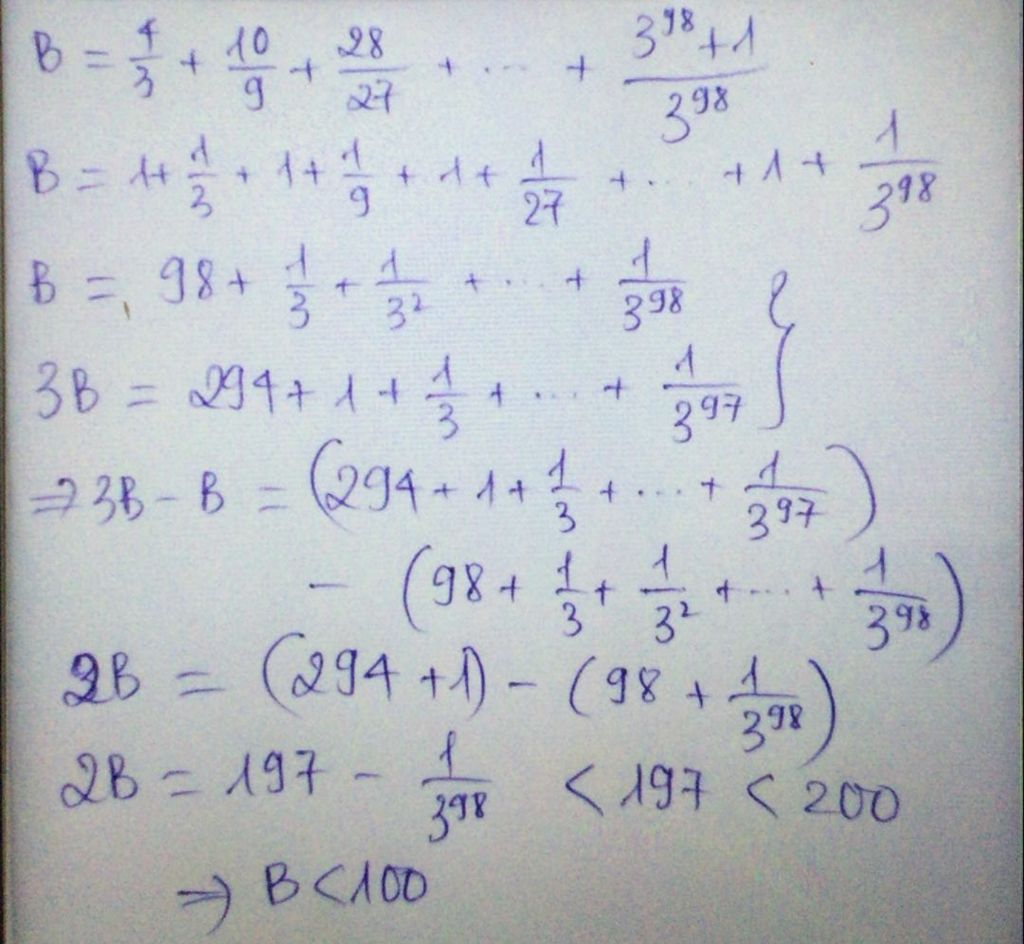 B = 4/3 + 10/9 + 28/27 + ... + (3^98 + 1)/3^98
B = 1 + 1/3 + 1 + 1/9 + 1 + 1/27 + ... + 1 + 1/3^98
B = 98 + 1/3 + 1/3² + ... + 1/3^98 }
3B = 294 + 1 + 1/3 + ... + 1/3^97
⇒ 3B - B = (294 + 1 + 1/3 + ... + 1/3^97)
- (98 + 1/3 + 1/3² + ... + 1/3^98)
2B = (294 + 1) - (98 + 1/3^98)
2B = 197 - 1/3^98 < 197 < 200
⇒ B < 100